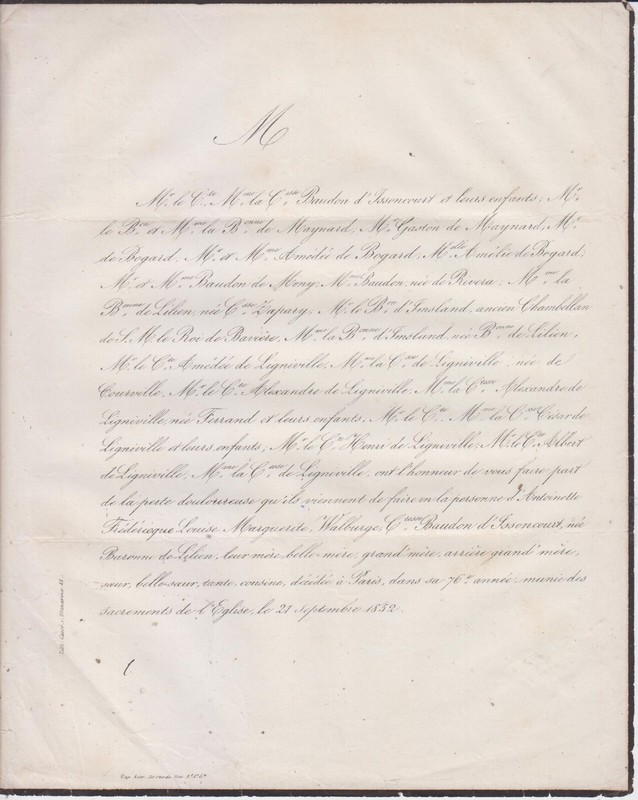 M
Mr. le Cte. Mme. la Csse. Baudon d'Issoncourt et leurs enfants; Mr.
le Bon. et Mme. la Bonne. de Maynard, Mr. Gaston de Maynard, Mr.
de Bogard, Mr. et Mme. Amédée de Bogard, Melle. Amélie de Bogard;
Mr. et Mme. Baudon de Mony, Mme. Baudon, née de Revera; Mme. la
Bonne. de Lilien, née Csse. Zapary; Mr. le Bon. d'Imsland, ancien Chambellan
de S. M. le Roi de Bavière, Mme. la Bonne. d'Imsland, née Bonne. de Lilien,
Mr. le Cte. Amédée de Ligniville, Mme. la Csse. de Ligniville, née de
Courvelle, Mr. le Cte. Alexandre de Ligniville, Mme. la Ctesse. Alexandre de
Ligniville, née Ferrand et leurs enfants, Mr. le Cte. Mme. la Csse. César de
Ligniville et leurs enfants; Mr. le Cte. Henri de Ligniville; Mr. le Cte. Albert
de Ligniville, Mme. la Csse. de Ligniville, ont l'honneur de vous faire part
de la perte douloureuse qu'ils viennent de faire en la personne d'Antoinette
Frédéricque Louise Marguerite, Walburge, Ctesse. Baudon d'Issoncourt, née
Baronne de Lilien, leur mère, belle-mère, grand'mère, arrière grand'mère,
sœur, belle-sœur, tante, cousine, décédée à Paris, dans sa 76e. année, munie des
sacrements de l'Eglise, le 21 Septembre 1852.